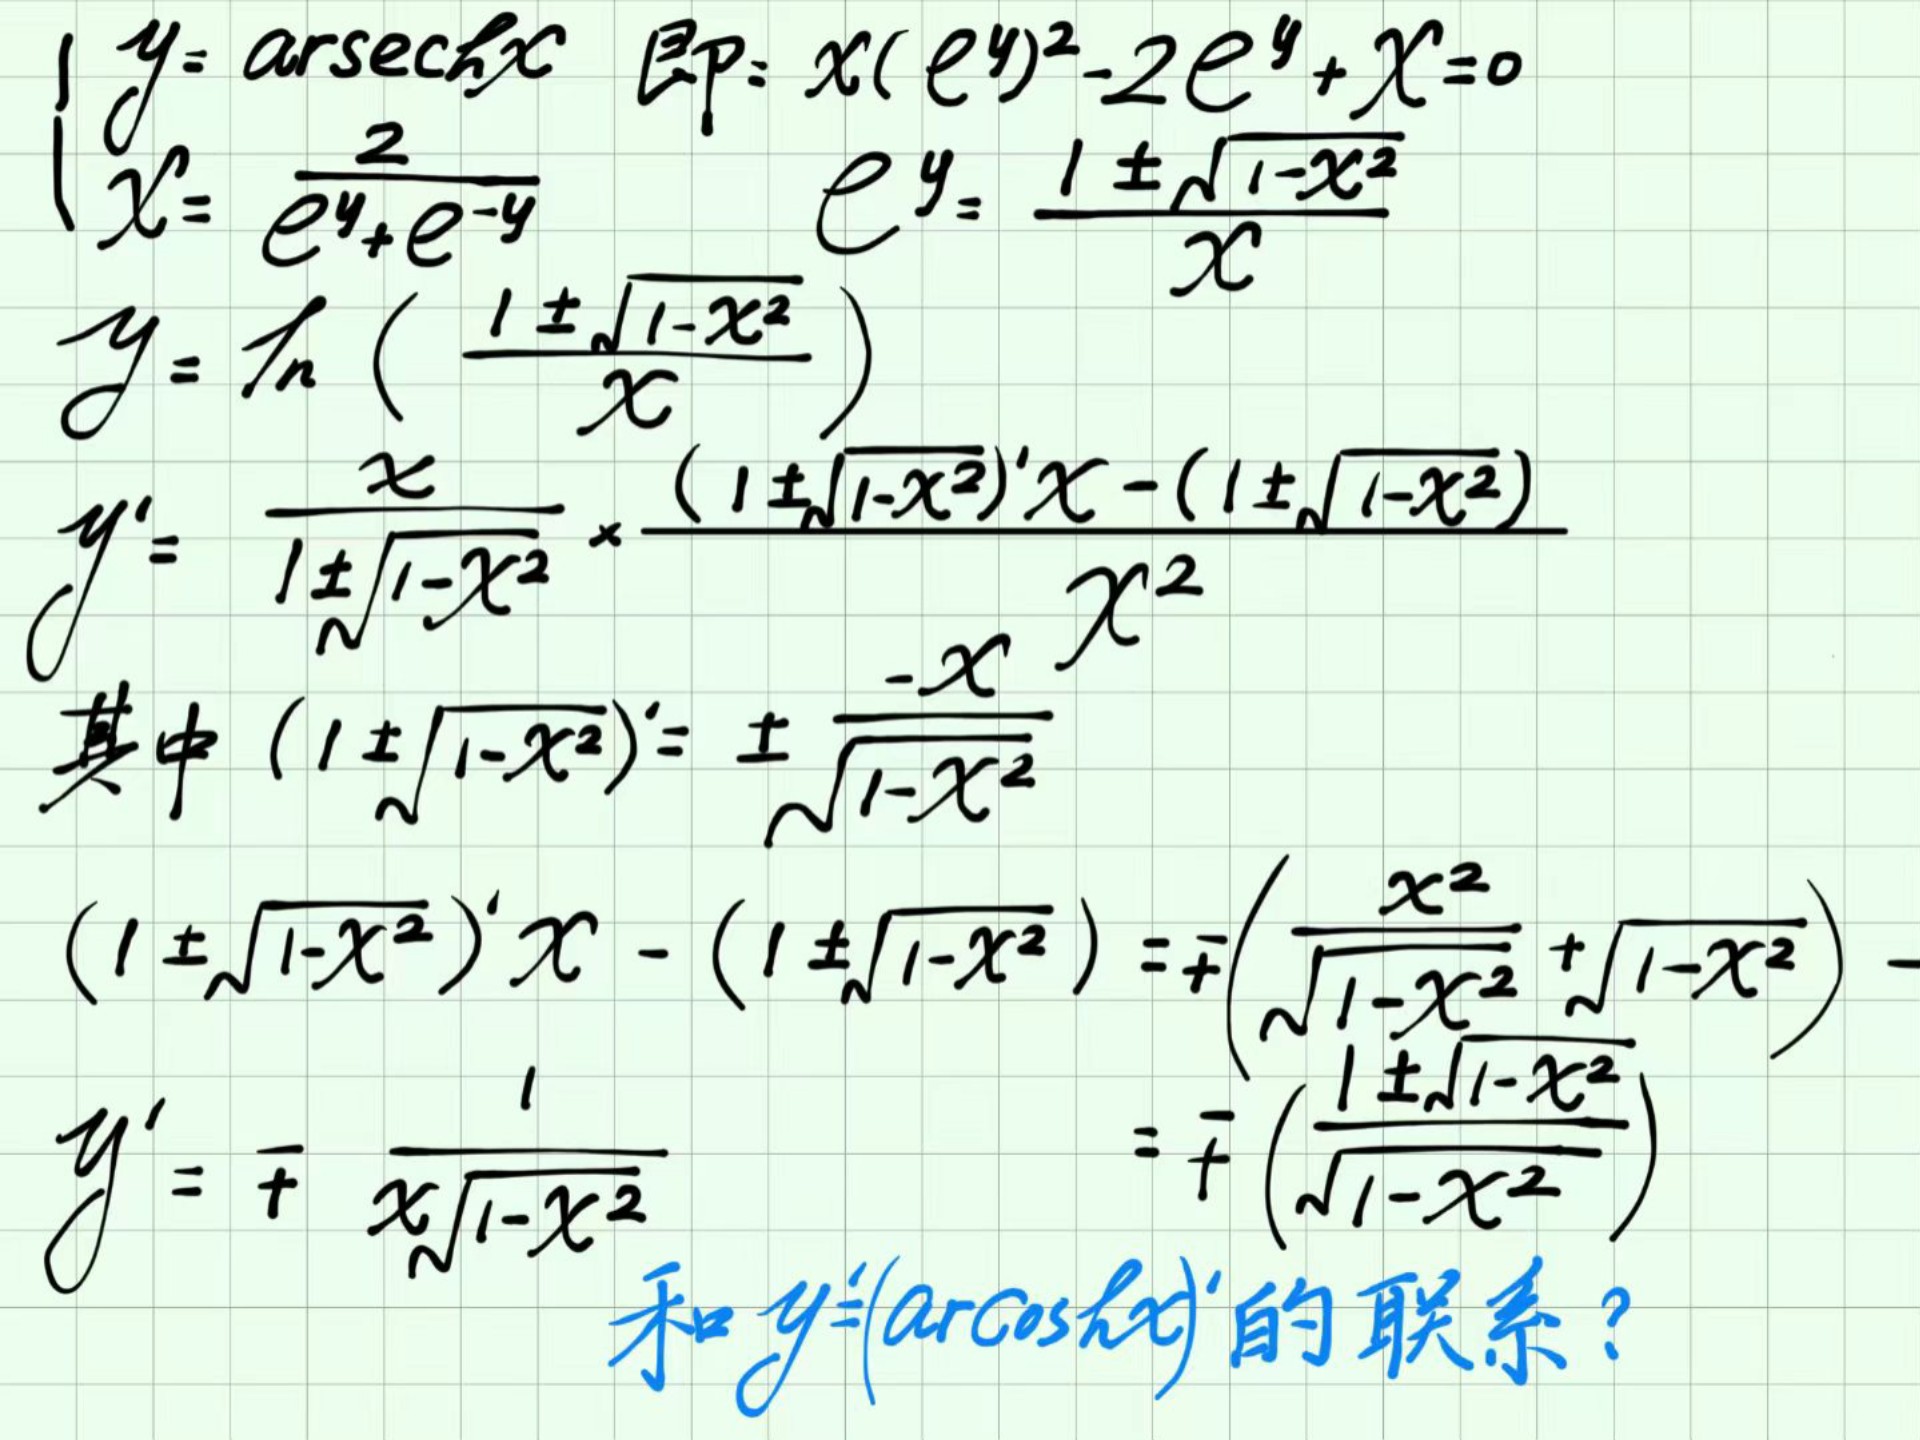 y = arsechx 即: x(e^y)^2 - 2e^y + x = 0
x = \frac{2}{e^y + e^{-y}} e^y = \frac{1 ± \sqrt{1-x^2}}{x}
y = ln(\frac{1 ± \sqrt{1-x^2}}{x})
y' = \frac{x}{1 ± \sqrt{1-x^2}} × \frac{(1 ± \sqrt{1-x^2})'x - (1 ± \sqrt{1-x^2})}{x^2}
其中 (1 ± \sqrt{1-x^2})' = ± \frac{-x}{\sqrt{1-x^2}}
(1 ± \sqrt{1-x^2})'x - (1 ± \sqrt{1-x^2}) = ∓(\frac{x^2}{\sqrt{1-x^2}} + \sqrt{1-x^2}) -
y' = ∓ \frac{1}{x\sqrt{1-x^2}} = ∓(\frac{1 ± \sqrt{1-x^2}}{\sqrt{1-x^2}})
和 y' = (arcoshx)' 的联系?